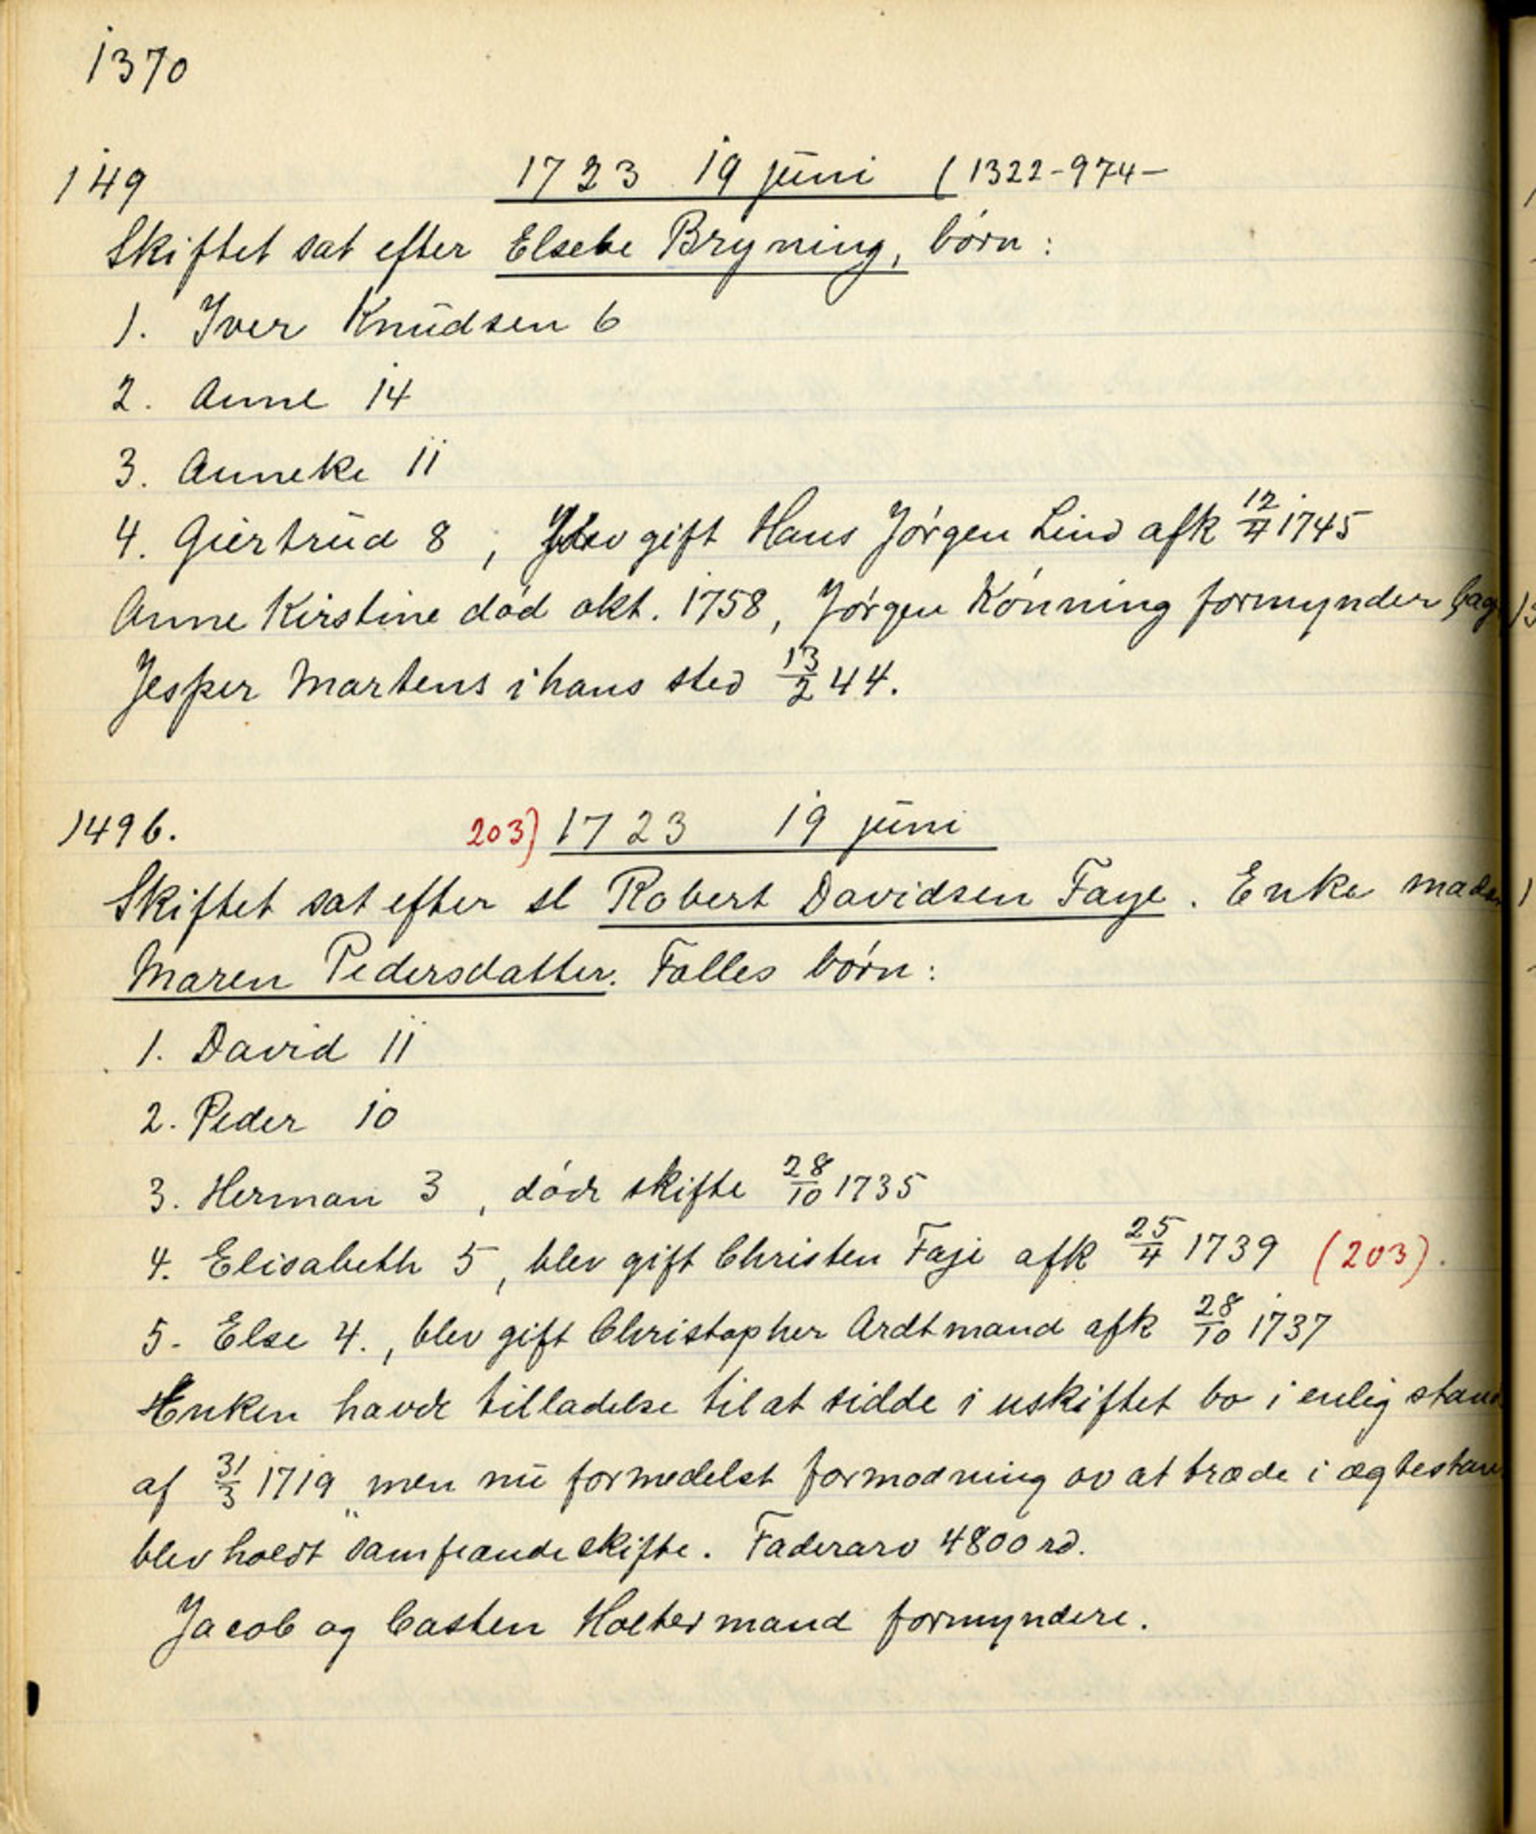 1370
149 1723 19 juni (1322-974-
Skiftet sat efter Elsebe Bryning, børn:
1. Iver Knudsen 6
2. Anne 14
3. Anneke 11
4. Giertrud 8, blev gift Hans Jørgen Lind afk 12/4 1745
Anne Kirstine død okt. 1758, Jørgen Kønning formynder
Jesper Martens i hans sted 13/2 44.
1496. 203) 1723 19 juni
Skiftet sat efter sl Robert Davidsen Faye. Enke
Maren Pedersdatter. Falles børn:
1. David 11
2. Peder 10
3. Herman 3, døde skifte 28/10 1735
4. Elisabeth 5, blev gift Christen Faje afk 25/4 1739 (203).
5. Else 4., blev gift Christopher Ardtmand afk 28/10 1737
Enken havde tilladelse til at sidde i uskiftet bo i enlig stand
af 31/3 1719 men nu formedelst formodning ov at træde i ægtestan
blev holdt "samfrændeskifte. Faderarv 4800 rd.
Jacob og Casten Holtermand formyndere.